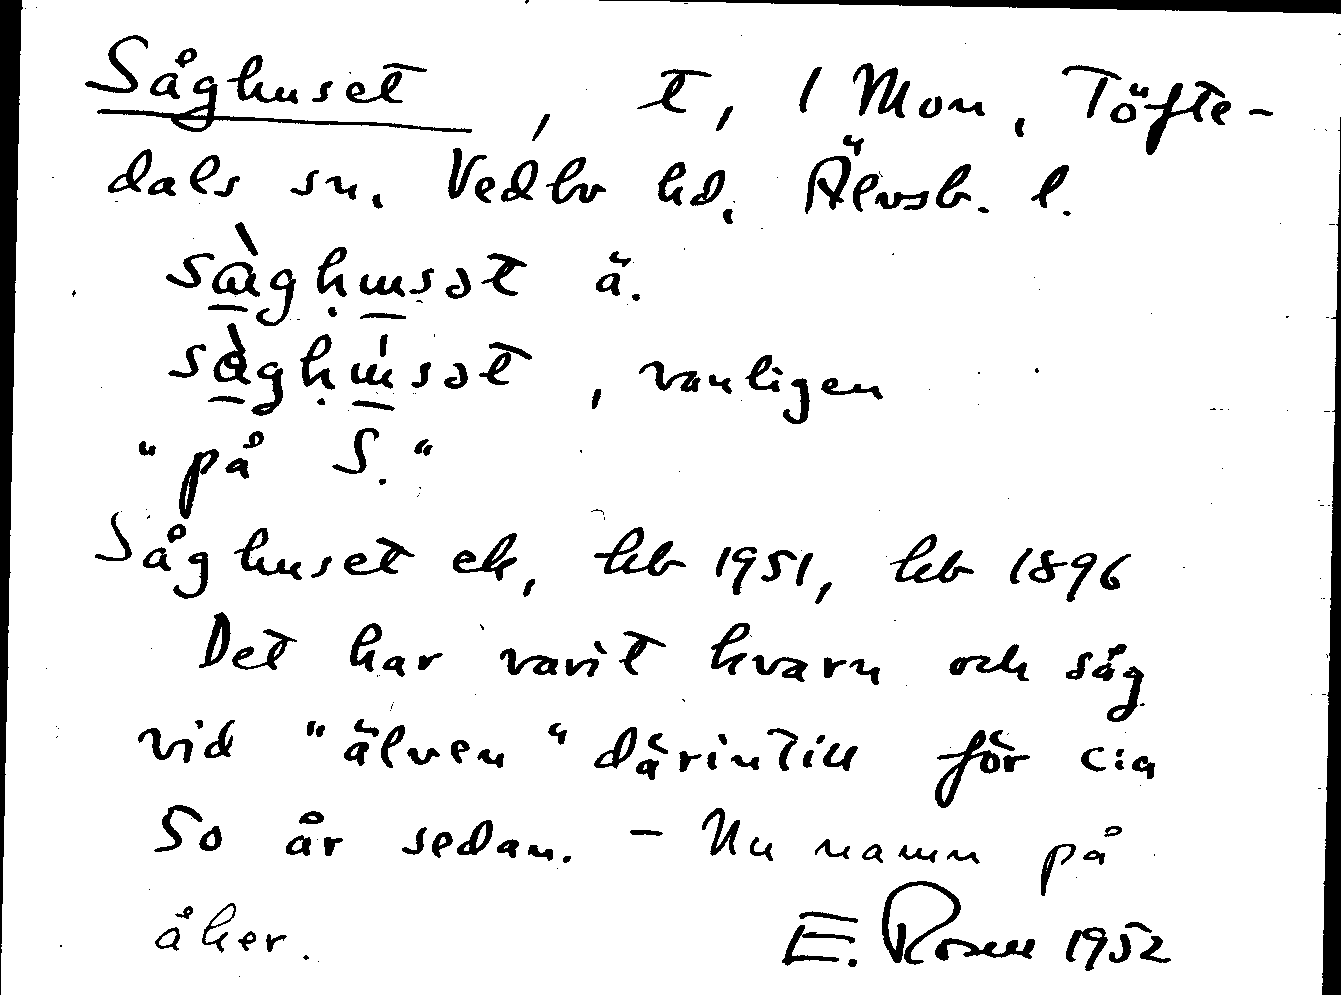 Såghuset, t, 1 Mon, Töfte-
dals sn. Vedbo hd. Älvsb. l.
sàgḥusət ä.
sàgḥúsət, vanligen
"på S."
Såghuset ek, hb 1951, hb 1896
Det har varit kvarn och såg
vid "älven" därintill för c:a
50 år sedan. – Nu namn på
åker. E. Rosell 1952